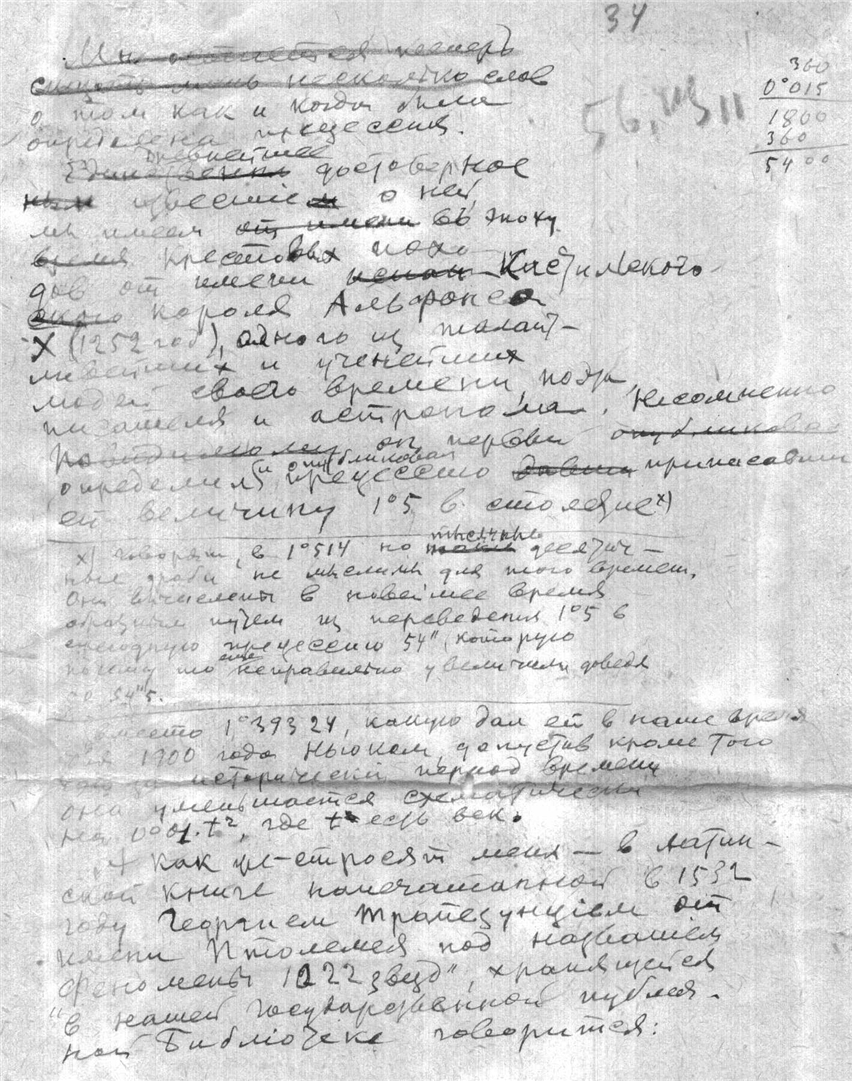 34
360
0°015
1800
360
5400
Мне остается теперь
сказать лишь несколько слов
о том как и когда была
определена прецессия.
Древнейшее
достоверное
известие о ней
мы имеем от имени в эпоху
время крестовых похо
дов от имени Кастильского
короля Альфонса
X (1252 год), одного из талант-
ливейших и ученейших
людей своего времени, поэта,
писателя и астронома. Несомненно
он первый опубликовал
определил и опубликовал прецессию приписавши
ей величину 1°5 в столетие x)
x) говорят, в 1°514 но тысячные десятич-
ные дроби не мыслимы для того времени.
Они вычислены в новейшее время
обратным путем из переведения 1°5 в
ежегодную прецессию 54", которую
почему то еще неправильно увеличили доведя
до 54"5.
вместо 1°39324, какую дал ей в наше время
для 1900 года Ньюком, допустив кроме того
что за исторический период времени
она уменьшается схематически
на 0°01.t², где t есть век.
Как же - спросят меня - в латин-
ской книге напечатанной в 1532
году Георгием Трапезунцiем от
имени Птолемея под названием
"Феномены 1022 звезд", хранящейся
в нашей государственной публич-
ной Библiотеке говорится: